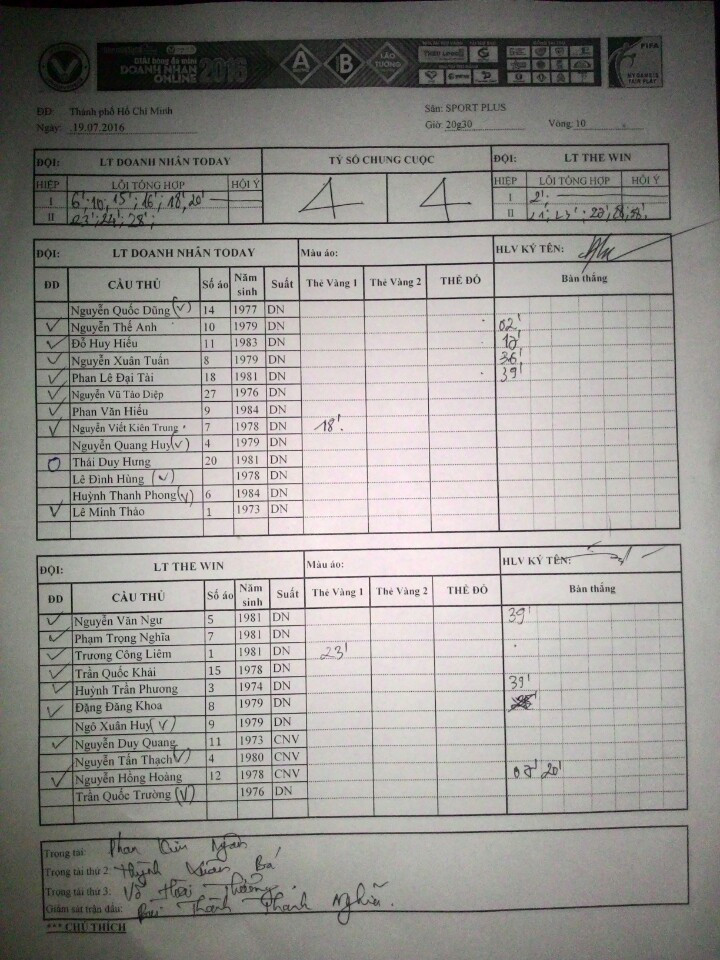 GIẢI bóng đá mini
DOANH NHÂN 2016
ONLINE
A B LÃO TƯỚNG
FIFA
MY GAME IS FAIR PLAY
ĐĐ: Thành phố Hồ Chí Minh Sân: SPORT PLUS
Ngày: 19.07.2016 Giờ: 20g30 Vòng: 10
ĐỘI: LT DOANH NHÂN TODAY TỶ SỐ CHUNG CUỘC ĐỘI: LT THE WIN
HIỆP LỖI TỔNG HỢP HỘI Ý 4 4 HIỆP LỖI TỔNG HỢP HỘI Ý
I 6'; 10; 15'; 16'; 18', 20' I 2';
II 23'; 24'; 28'; II
ĐỘI: LT DOANH NHÂN TODAY Màu áo: HLV KÝ TÊN:
ĐD CẦU THỦ Số áo Năm sinh Suất Thẻ Vàng 1 Thẻ Vàng 2 THẺ ĐỎ Bàn thắng
Nguyễn Quốc Dũng (v) 14 1977 DN
✓ Nguyễn Thế Anh 10 1979 DN 02'
✓ Đỗ Huy Hiếu 11 1983 DN 12'
✓ Nguyễn Xuân Tuấn 8 1979 DN 36'
✓ Phan Lê Đại Tài 18 1981 DN 39'
✓ Nguyễn Vũ Tảo Diệp 27 1976 DN
✓ Phan Văn Hiếu 9 1984 DN
✓ Nguyễn Viết Kiên Trung 7 1978 DN 18'
Nguyễn Quang Huy (v) 4 1979 DN
O Thái Duy Hưng 20 1981 DN
Lê Đình Hùng (v) 1978 DN
Huỳnh Thanh Phong (v) 6 1984 DN
✓ Lê Minh Thảo 1 1973 DN
ĐỘI: LT THE WIN Màu áo: HLV KÝ TÊN:
ĐD CẦU THỦ Số áo Năm sinh Suất Thẻ Vàng 1 Thẻ Vàng 2 THẺ ĐỎ Bàn thắng
✓ Nguyễn Văn Ngư 5 1981 DN 39'
✓ Phạm Trọng Nghĩa 7 1981 DN
✓ Trương Công Liêm 1 1981 DN 23'
✓ Trần Quốc Khải 15 1978 DN
✓ Huỳnh Trần Phương 3 1974 DN 39'
✓ Đặng Đăng Khoa 8 1979 DN
Ngô Xuân Huy (v) 9 1979 DN
✓ Nguyễn Duy Quang 11 1973 CNV
Nguyễn Tấn Thạch (v) 4 1980 CNV
✓ Nguyễn Hồng Hoàng 12 1978 CNV 07' 20'
Trần Quốc Trường (v) 1976 DN
Trọng tài: Phan
Trọng tài thứ 2: Huỳnh Xuân Bá
Trọng tài thứ 3: Võ Hoài Thường
Giám sát trận đấu: Bùi Thành Phánh Nghĩa.
*** CHÚ THÍCH